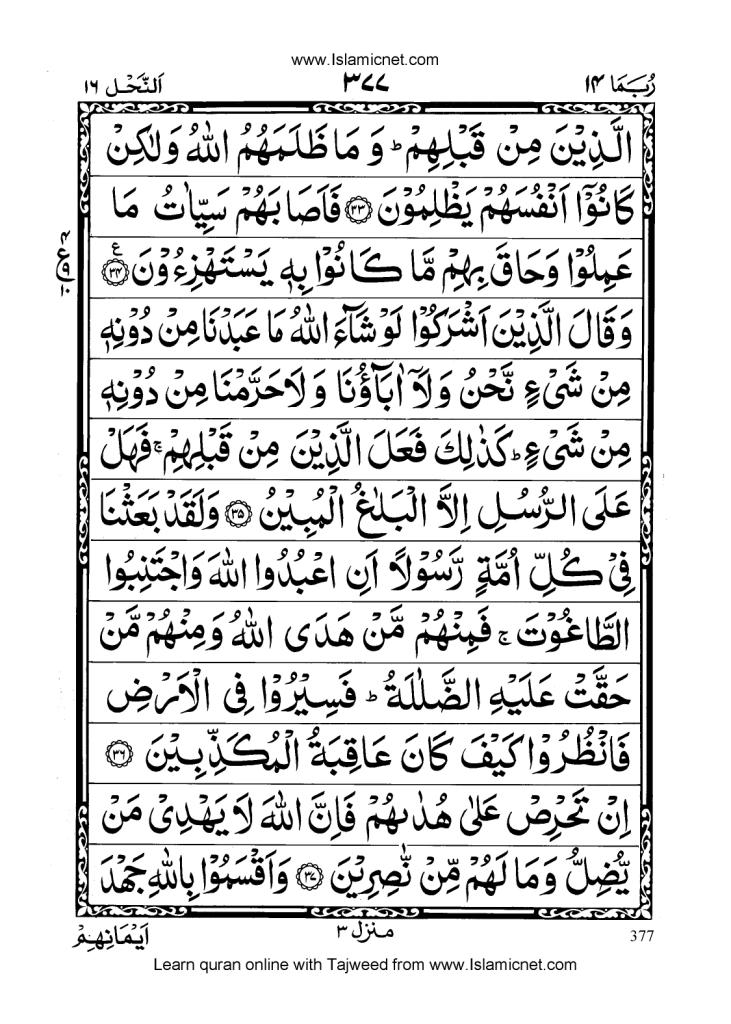 www.Islamicnet.com
رُبَمَا ١٤
٣٧٧
اَلنَّحْل ١٦
الَّذِيْنَ مِنْ قَبْلِهِمْ ؕ وَ مَا ظَلَمَهُمُ اللّٰهُ وَلٰكِنْ
كَانُوْۤا اَنْفُسَهُمْ يَظْلِمُوْنَ ﴿٣٣﴾ فَاَصَابَهُمْ سَيِّاٰتُ مَا
عَمِلُوْا وَحَاقَ بِهِمْ مَّا كَانُوْا بِهٖ يَسْتَهْزِءُوْنَ ﴿٣٤﴾ ع
٤
ع
٩
١٠
وَ قَالَ الَّذِيْنَ اَشْرَكُوْا لَوْ شَآءَ اللّٰهُ مَا عَبَدْنَا مِنْ دُوْنِهٖ
مِنْ شَىْءٍ نَّحْنُ وَلَاۤ اٰبَآؤُنَا وَ لَا حَرَّمْنَا مِنْ دُوْنِهٖ
مِنْ شَىْءٍ ؕ كَذٰلِكَ فَعَلَ الَّذِيْنَ مِنْ قَبْلِهِمْ ۚ فَهَلْ
عَلَى الرُّسُلِ اِلَّا الْبَلٰغُ الْمُبِيْنُ ﴿٣٥﴾ وَلَقَدْ بَعَثْنَا
فِىْ كُلِّ اُمَّةٍ رَّسُوْلًا اَنِ اعْبُدُوا اللّٰهَ وَاجْتَنِبُوا
الطَّاغُوْتَ ۚ فَمِنْهُمْ مَّنْ هَدَى اللّٰهُ وَمِنْهُمْ مَّنْ
حَقَّتْ عَلَيْهِ الضَّلٰلَةُ ؕ فَسِيْرُوْا فِى الْاَرْضِ
فَانْظُرُوْا كَيْفَ كَانَ عَاقِبَةُ الْمُكَذِّبِيْنَ ﴿٣٦﴾
اِنْ تَحْرِصْ عَلٰى هُدٰىهُمْ فَاِنَّ اللّٰهَ لَا يَهْدِىْ مَنْ
يُّضِلُّ وَمَا لَهُمْ مِّنْ نّٰصِرِيْنَ ﴿٣٧﴾ وَاَقْسَمُوْا بِاللّٰهِ جَهْدَ
377
منزل ٣
اَيْمَانِهِمْ
Learn quran online with Tajweed from www.Islamicnet.com